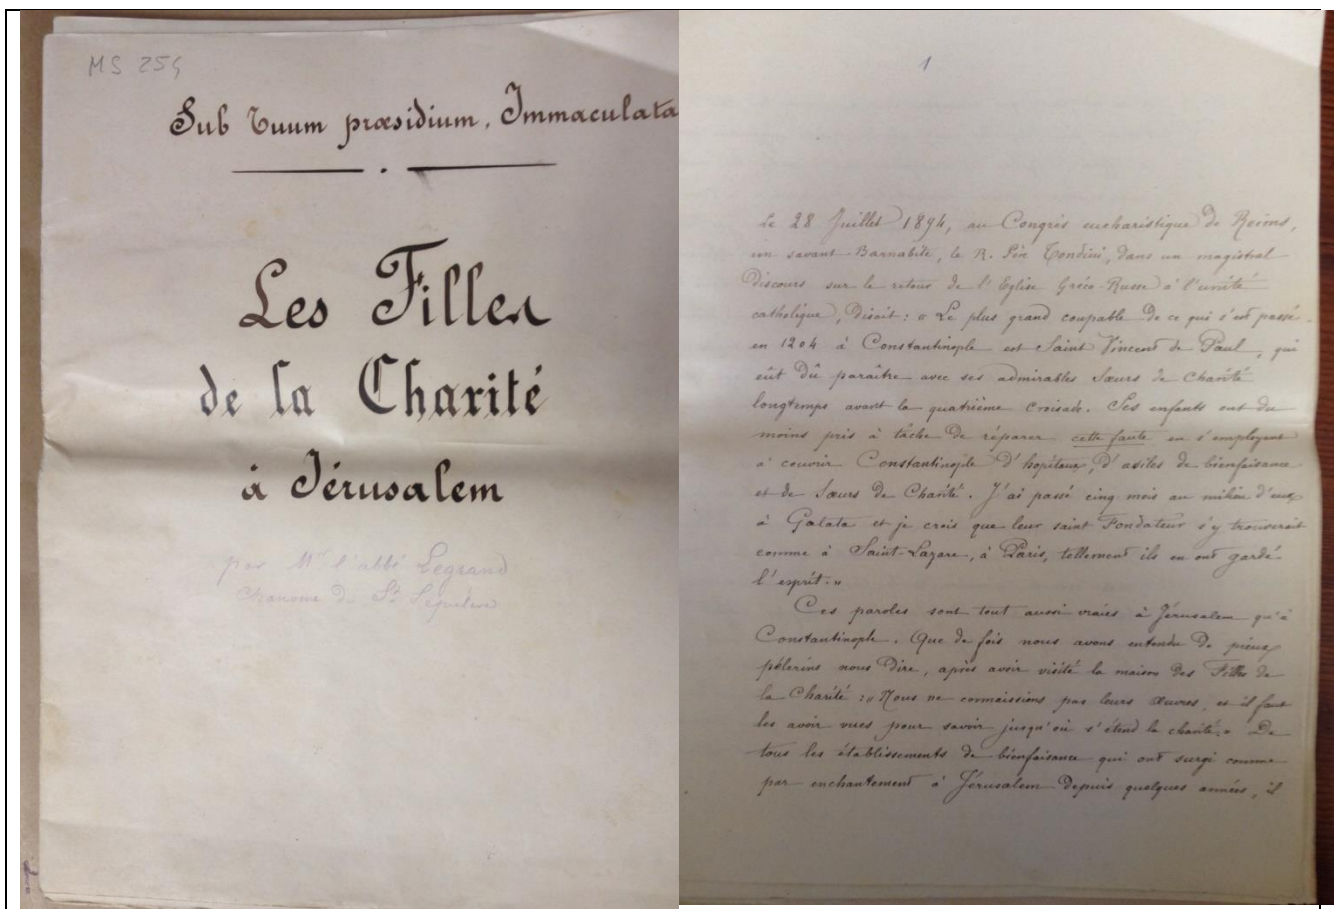 MS 254
Sub Tuum præsidium, Immaculata
Les Filles
de la Charité
à Jérusalem
par Mr l'abbé Legrand
Chanoine du St Sépulcre
1
Le 28 Juillet 1894, au Congrès eucharistique de Reims,
un savant Barnabite, le R. Père Tondini, dans un magistral
Discours sur le retour de l'Eglise Gréco-Russe à l'unité
catholique, disait : « Le plus grand coupable de ce qui s'est passé
en 1204 à Constantinople est Saint Vincent de Paul, qui
eût dû paraître avec ses admirables Sœurs de Charité
longtemps avant la quatrième croisade. Ses enfants ont du
moins pris à tâche de réparer cette faute en s'employant
à couvrir Constantinople d'hopitaux, d'asiles de bienfaisance
et de Sœurs de Charité. J'ai passé cinq mois au milieu d'eux
à Galata et je crois que leur saint Fondateur s'y trouverait
comme à Saint-Lazare, à Paris, tellement ils en ont gardé
l'esprit. »
Ces paroles sont tout aussi vraies à Jérusalem qu'à
Constantinople. Que de fois nous avons entendu de pieux
pèlerins nous dire, après avoir visité la maison des Filles de
la Charité : « Nous ne connaissions pas leurs Œuvres, et il faut
les avoir vues pour savoir jusqu'où s'étend la charité. » De
tous les établissements de bienfaisance qui ont surgi comme
par enchantement à Jérusalem depuis quelques années, il